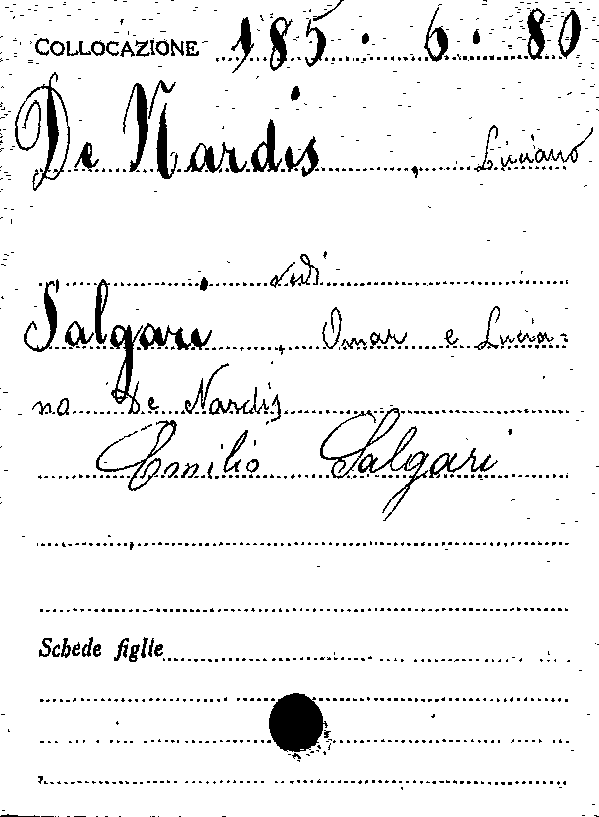 COLLOCAZIONE 185 . 6 . 80
De Nardis , Luciano
vedi
Salgari , Omar e Lucia=
no De Nardis
Emilio Salgari
Schede figlie